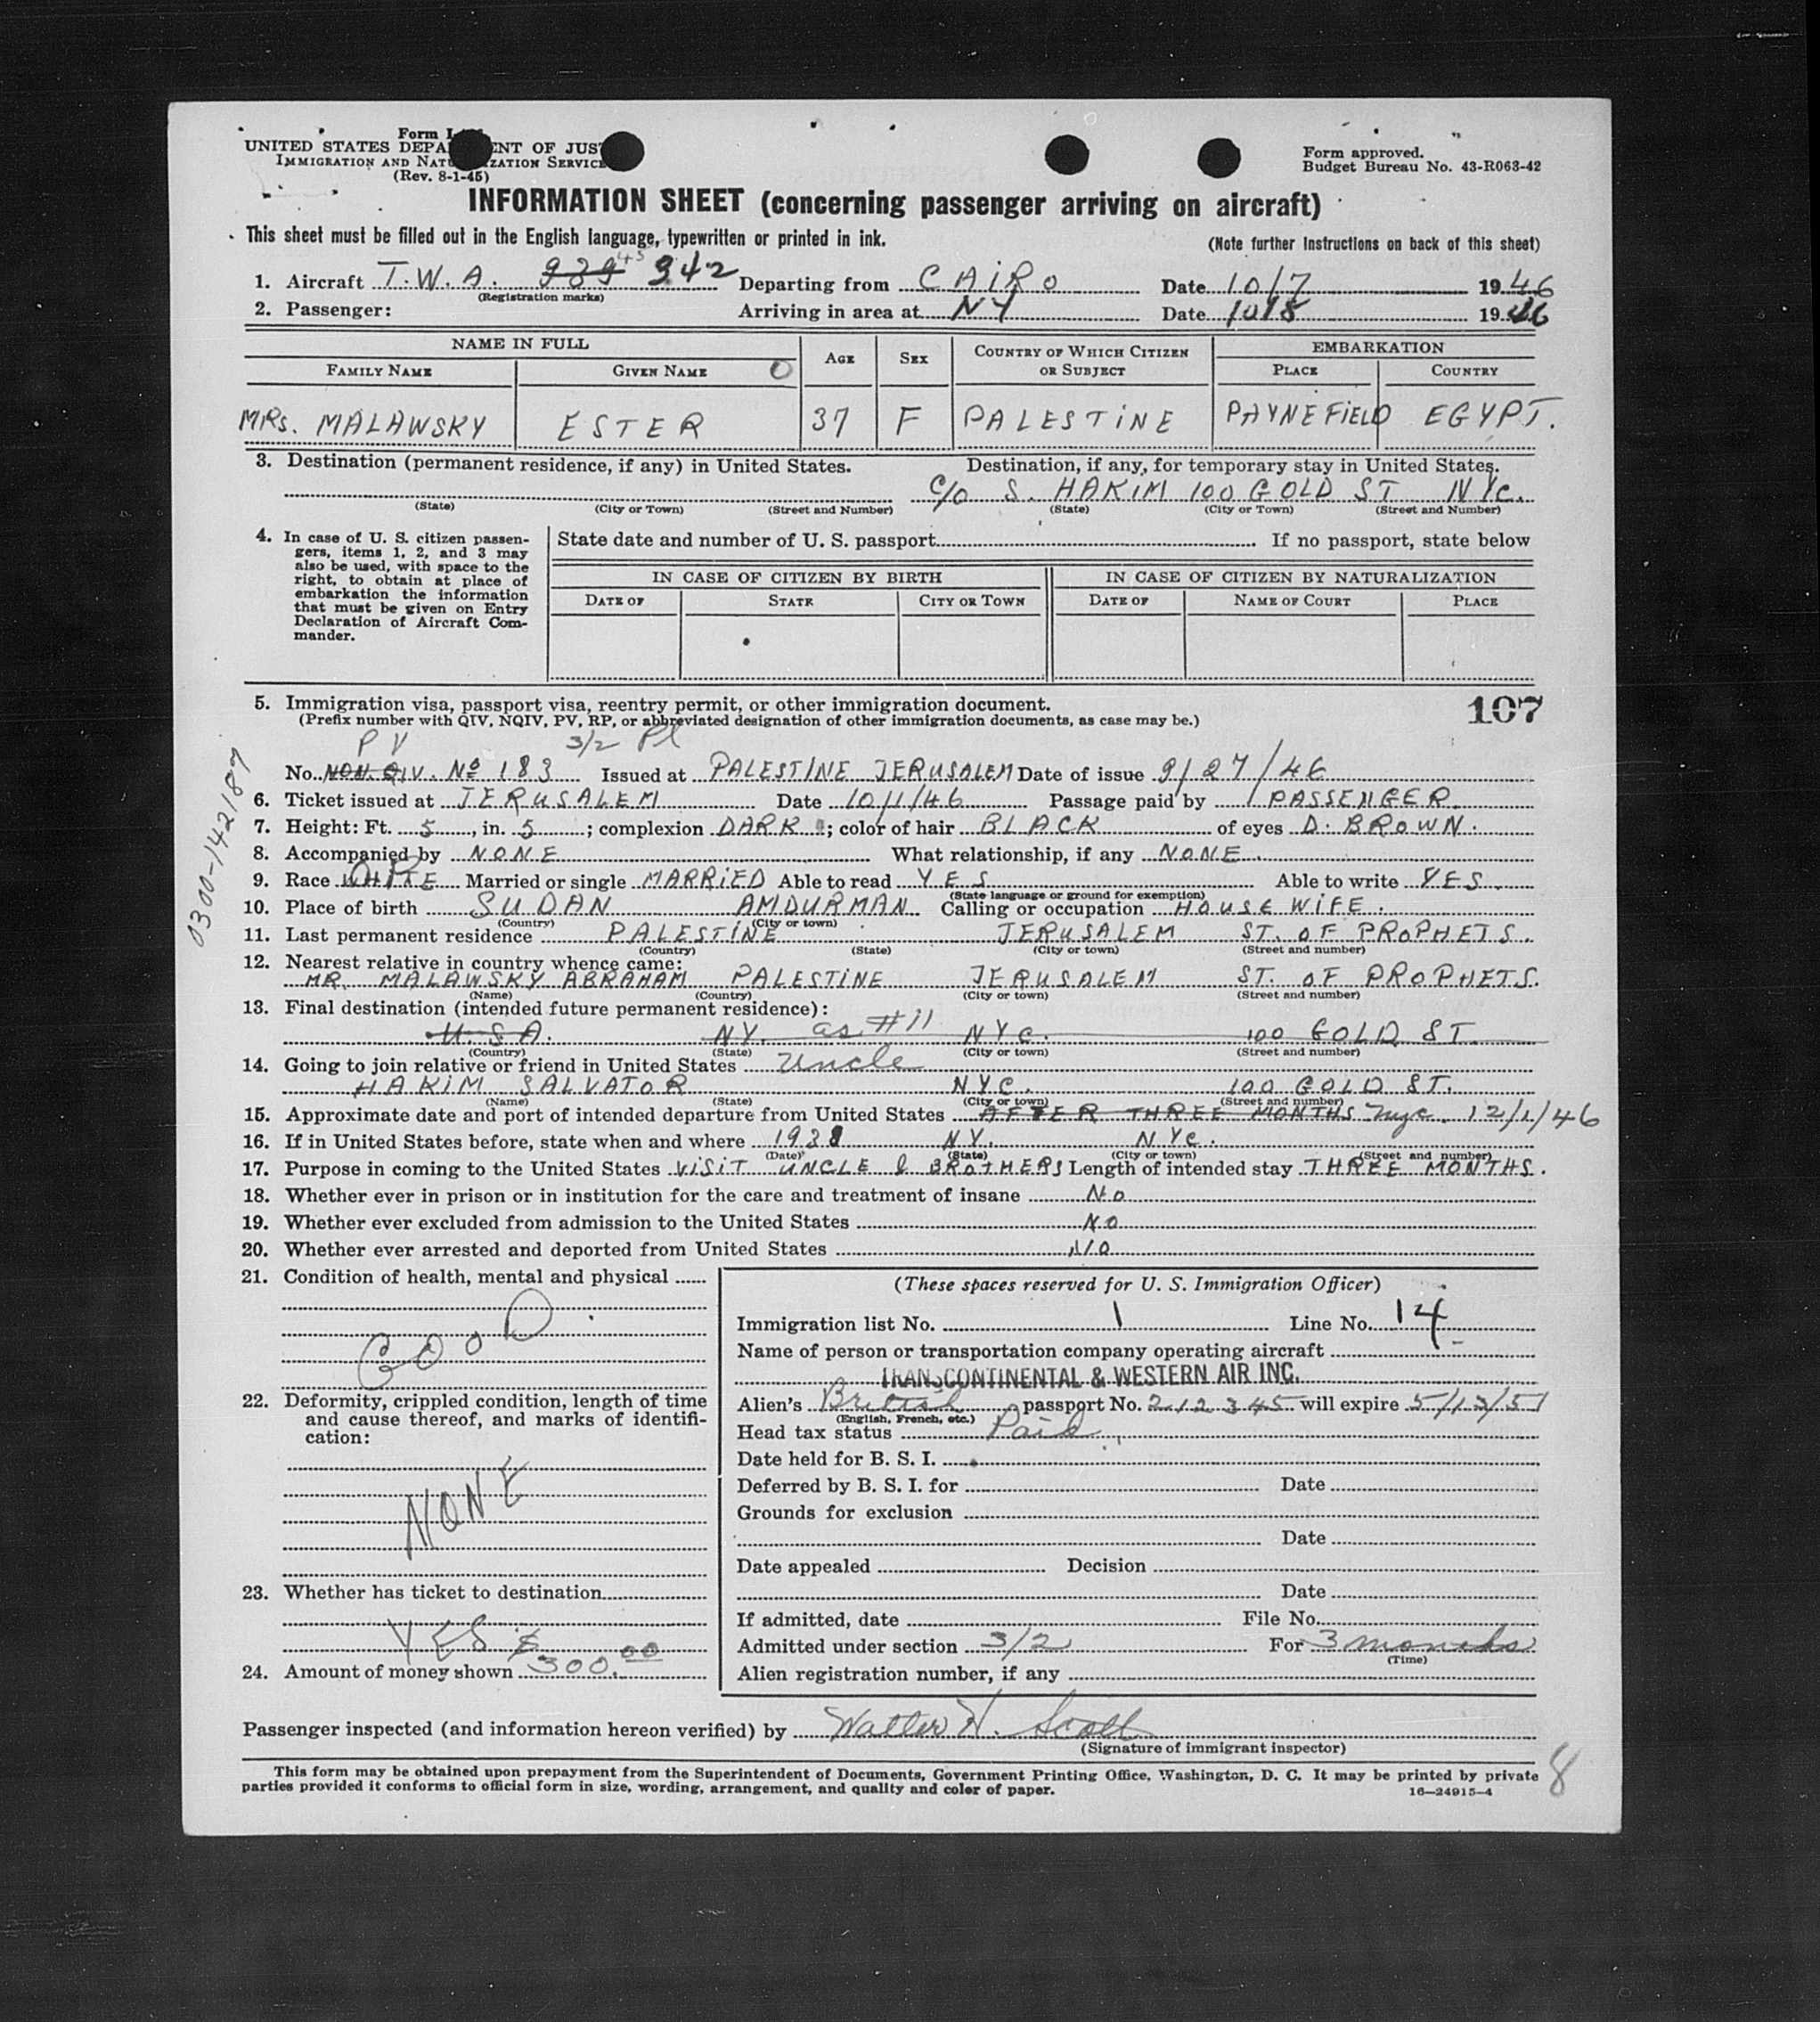 Form I
UNITED STATES DEPA ENT OF JUS
IMMIGRATION AND NATU ZATION SERVICE
(Rev. 8-1-45)
Form approved.
Budget Bureau No. 43-R063-42
INFORMATION SHEET (concerning passenger arriving on aircraft)
This sheet must be filled out in the English language, typewritten or printed in ink.
(Note further instructions on back of this sheet)
1. Aircraft T.W.A. 939 942 Departing from CAIRO Date 10/7 1946
(Registration marks)
2. Passenger: Arriving in area at NY Date 10/8 1946
NAME IN FULL AGE SEX COUNTRY OF WHICH CITIZEN OR SUBJECT EMBARKATION
FAMILY NAME GIVEN NAME PLACE COUNTRY
MRS. MALAWSKY ESTER 37 F PALESTINE PAYNEFIELD EGYPT.
3. Destination (permanent residence, if any) in United States. Destination, if any, for temporary stay in United States.
C/O S. HAKIM 100 GOLD ST NYC.
(State) (City or Town) (Street and Number) (State) (City or Town) (Street and Number)
4. In case of U. S. citizen passengers, items 1, 2, and 3 may also be used, with space to the right, to obtain at place of embarkation the information that must be given on Entry Declaration of Aircraft Commander.
State date and number of U. S. passport If no passport, state below
IN CASE OF CITIZEN BY BIRTH IN CASE OF CITIZEN BY NATURALIZATION
DATE OF STATE CITY OR TOWN DATE OF NAME OF COURT PLACE
5. Immigration visa, passport visa, reentry permit, or other immigration document. 107
(Prefix number with QIV, NQIV, PV, RP, or abbreviated designation of other immigration documents, as case may be.)
PV 3/2 Pl
No. NON. QIV. No 183 Issued at PALESTINE JERUSALEM Date of issue 9/27/46
6. Ticket issued at JERUSALEM Date 10/1/46 Passage paid by PASSENGER.
7. Height: Ft. 5, in. 5; complexion DARK; color of hair BLACK of eyes D. BROWN.
8. Accompanied by NONE What relationship, if any NONE.
9. Race WHITE Married or single MARRIED Able to read YES Able to write YES.
(State language or ground for exemption)
10. Place of birth SUDAN AMDURMAN Calling or occupation HOUSE WIFE.
(Country) (City or town)
11. Last permanent residence PALESTINE JERUSALEM ST. OF PROPHETS.
(Country) (State) (City or town) (Street and number)
12. Nearest relative in country whence came:
MR. MALAWSKY ABRAHAM PALESTINE JERUSALEM ST. OF PROPHETS.
(Name) (Country) (City or town) (Street and number)
13. Final destination (intended future permanent residence):
U.S.A. NY. as #11 NYC. 100 GOLD ST
(Country) (State) (City or town) (Street and number)
14. Going to join relative or friend in United States Uncle
HAKIM SALVATOR NYC. 100 GOLD ST.
(Name) (State) (City or town) (Street and number)
15. Approximate date and port of intended departure from United States AFTER THREE MONTHS nyc. 12/1/46
16. If in United States before, state when and where 1938 NY. NYC.
(Date) (State) (City or town) (Street and number)
17. Purpose in coming to the United States VISIT UNCLE & BROTHERS Length of intended stay THREE MONTHS.
18. Whether ever in prison or in institution for the care and treatment of insane NO
19. Whether ever excluded from admission to the United States NO
20. Whether ever arrested and deported from United States NO
21. Condition of health, mental and physical
GOOD.
22. Deformity, crippled condition, length of time and cause thereof, and marks of identification:
NONE
23. Whether has ticket to destination
YES
24. Amount of money shown $300.00
(These spaces reserved for U. S. Immigration Officer)
Immigration list No. 1 Line No. 14
Name of person or transportation company operating aircraft
TRANSCONTINENTAL & WESTERN AIR INC.
Alien's British passport No. 212345 will expire 5/13/51
(English, French, etc.)
Head tax status Paid
Date held for B. S. I.
Deferred by B. S. I. for Date
Grounds for exclusion
Date
Date appealed Decision
Date
If admitted, date File No.
Admitted under section 3/2 For 3 months
(Time)
Alien registration number, if any
Passenger inspected (and information hereon verified) by Walter H. Scott
(Signature of immigrant inspector)
This form may be obtained upon prepayment from the Superintendent of Documents, Government Printing Office, Washington, D. C. It may be printed by private
parties provided it conforms to official form in size, wording, arrangement, and quality and color of paper. 16—24915-4
8
0300-142187